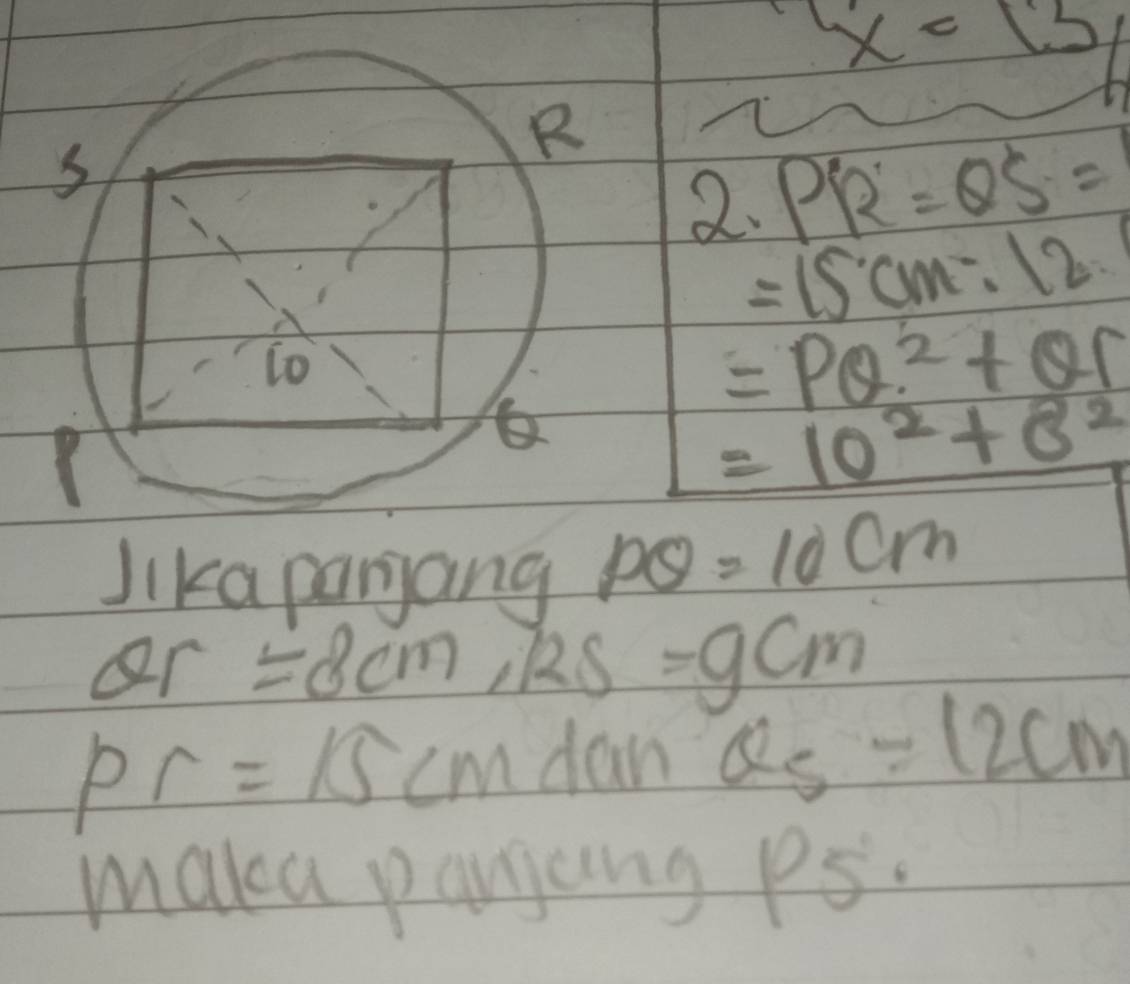 x = 13
S
R
10
P
Q
2. PR = QS =
= 15 cm : 12
= PQ.² + Qr
= 10² + 8²
Jika panjang PQ = 10 Cm
Qr = 8cm, RS = 9Cm
Pr = 15 cm dan Qs = 12Cm
maka panjang PS.